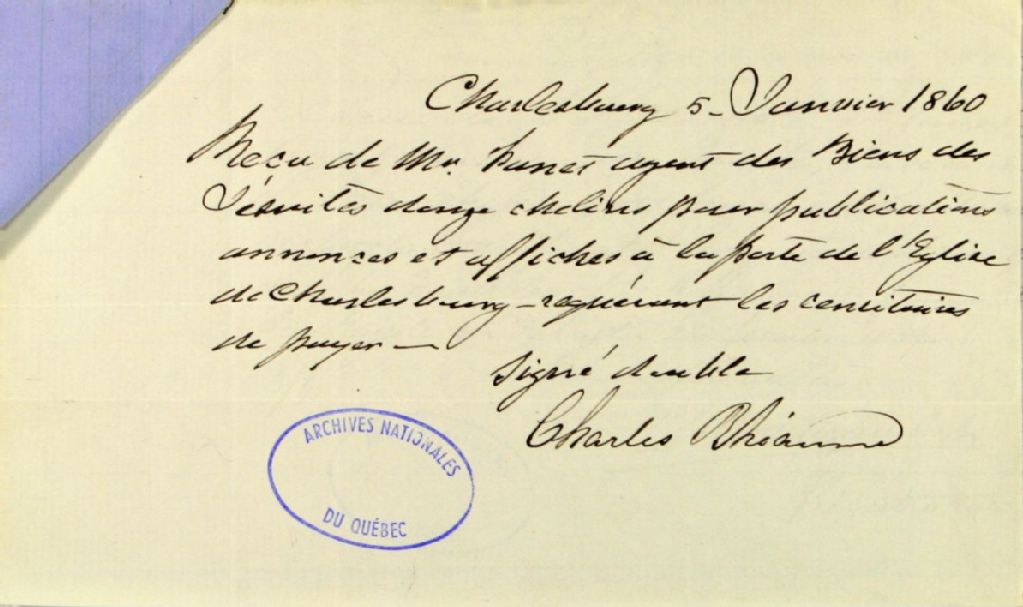 Charlesbourg 5 - Janvier 1860
Recu de Mr. Panet agent des Biens des
Jésuites douze chelins pour publications
annonces et affiches à la porte de l'Eglise
de Charlesbourg - requérant les censitaires
de payer —
Signé double
Charles
ARCHIVES NATIONALES
DU QUÉBEC